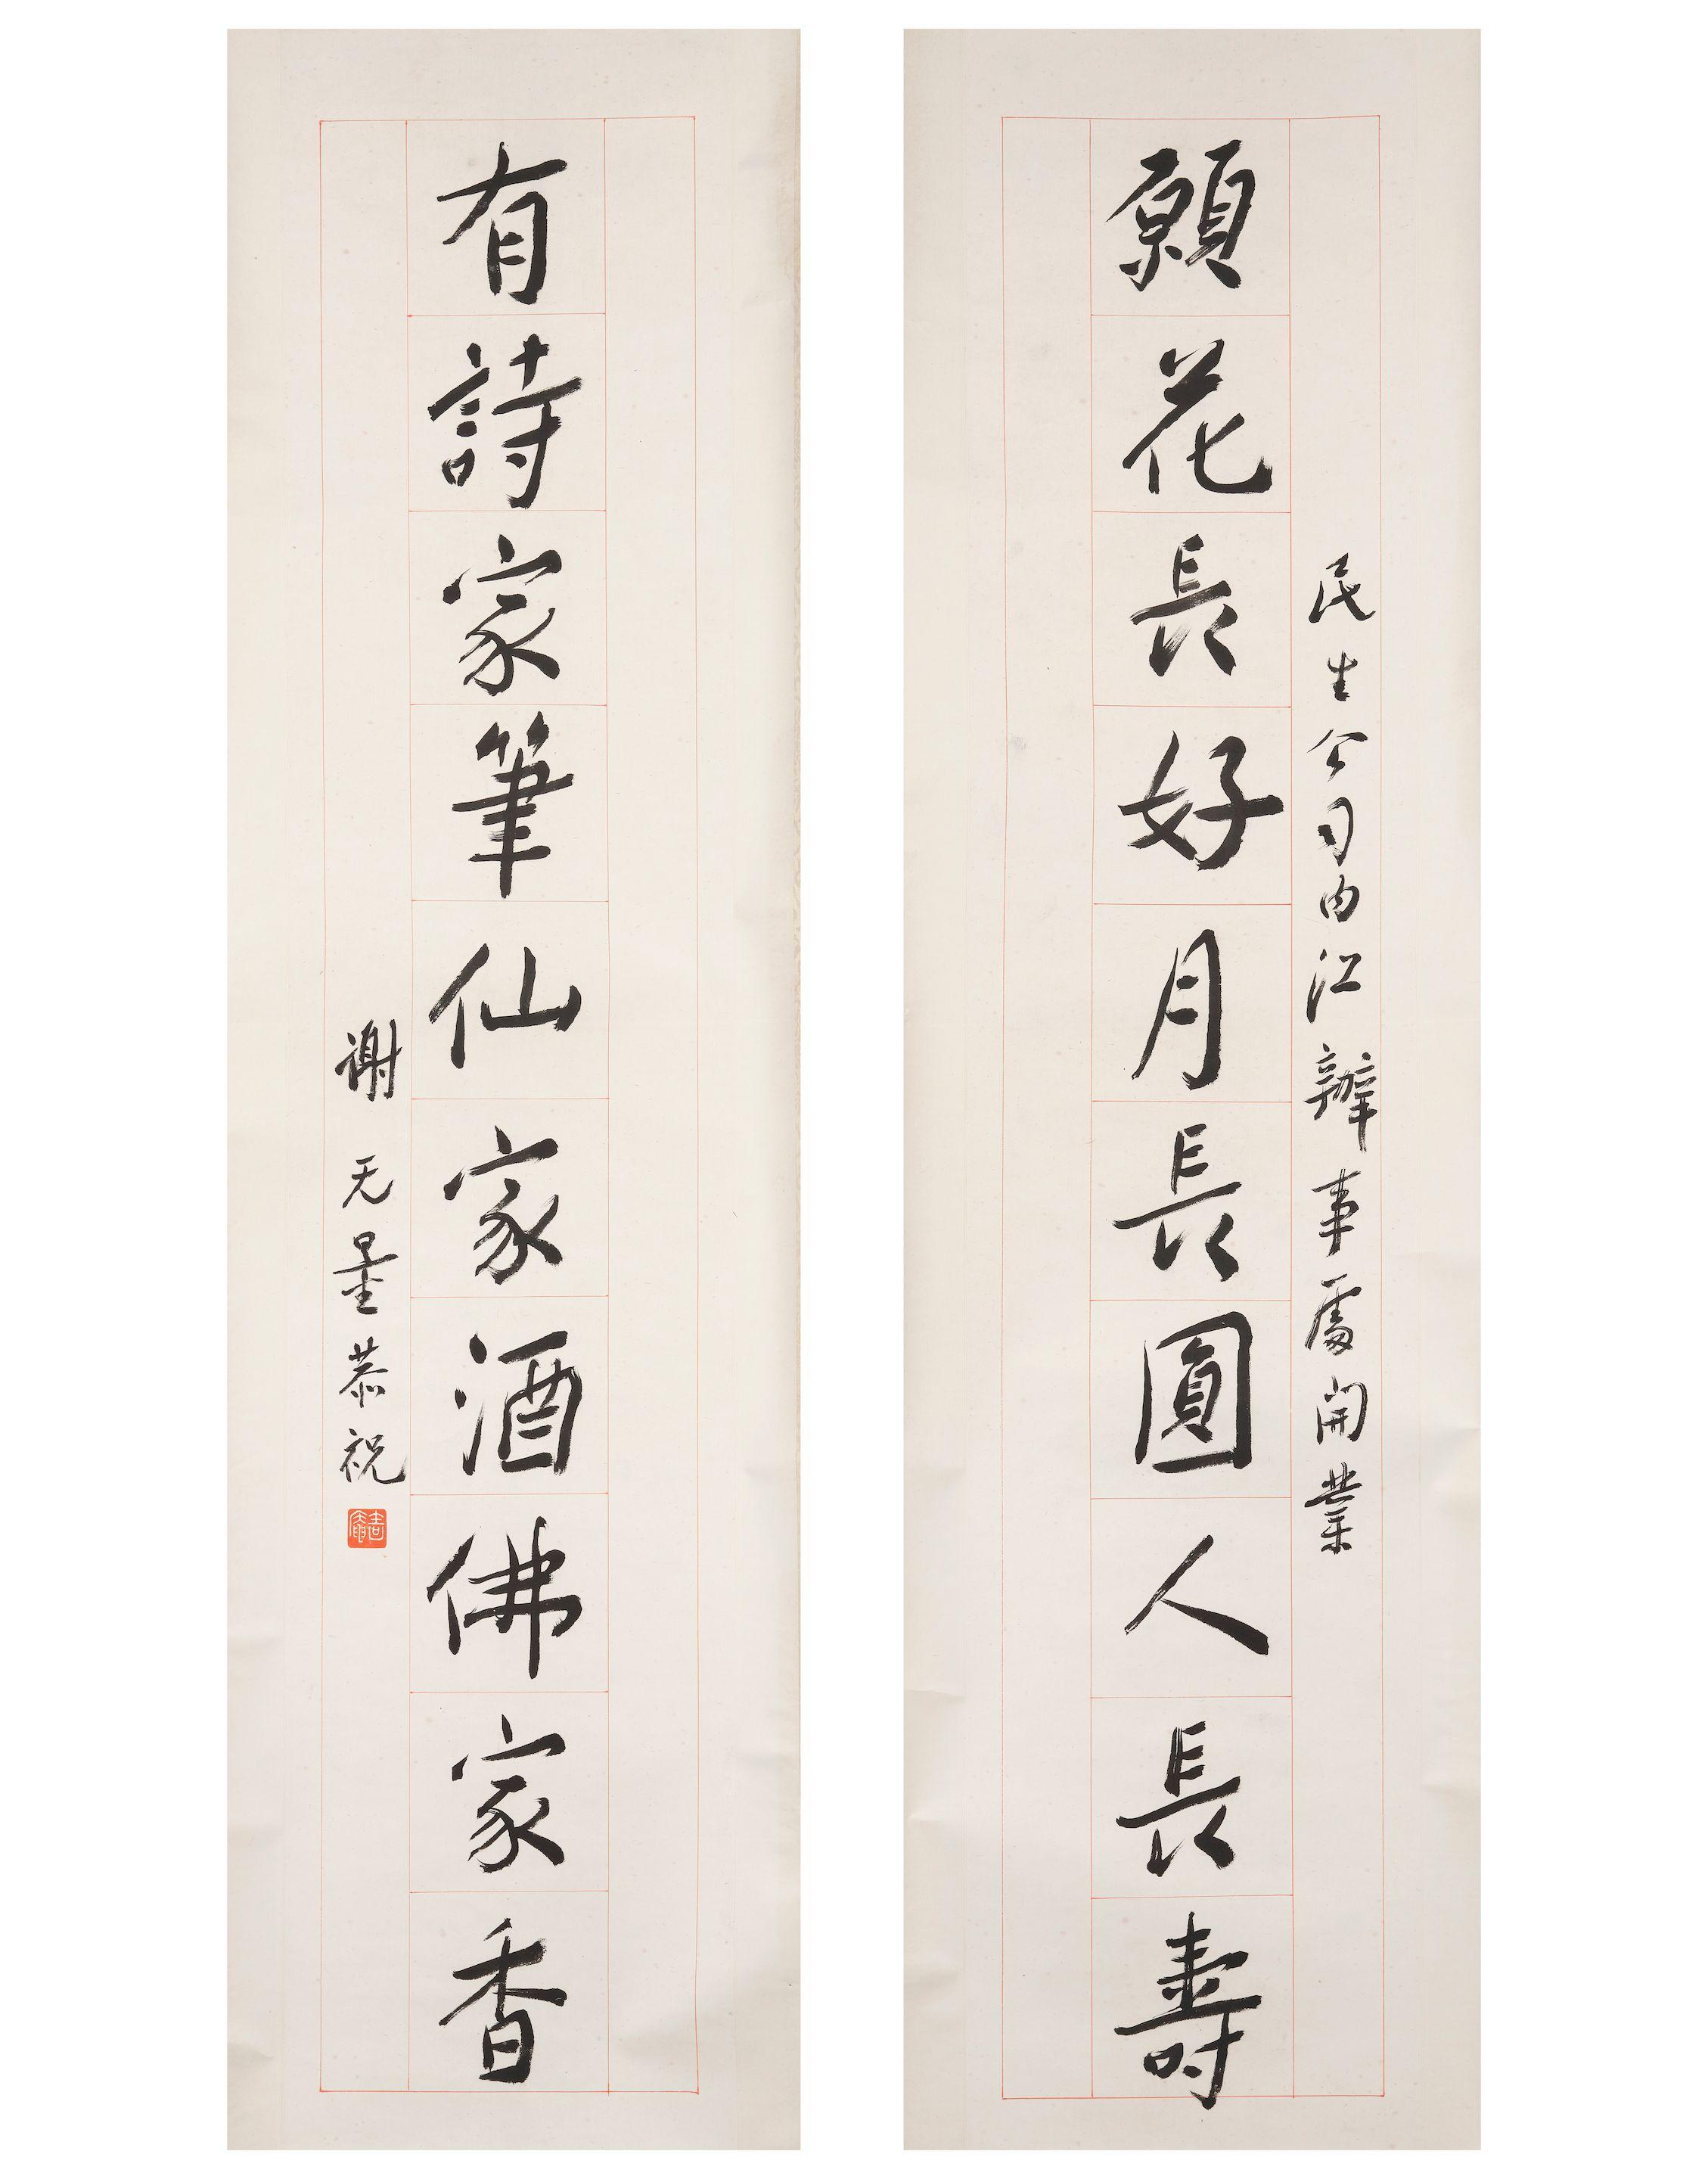 民生公司内江辦事處開業
願花長好月長圓人長壽
有詩家筆仙家酒佛家香
谢无量恭祝